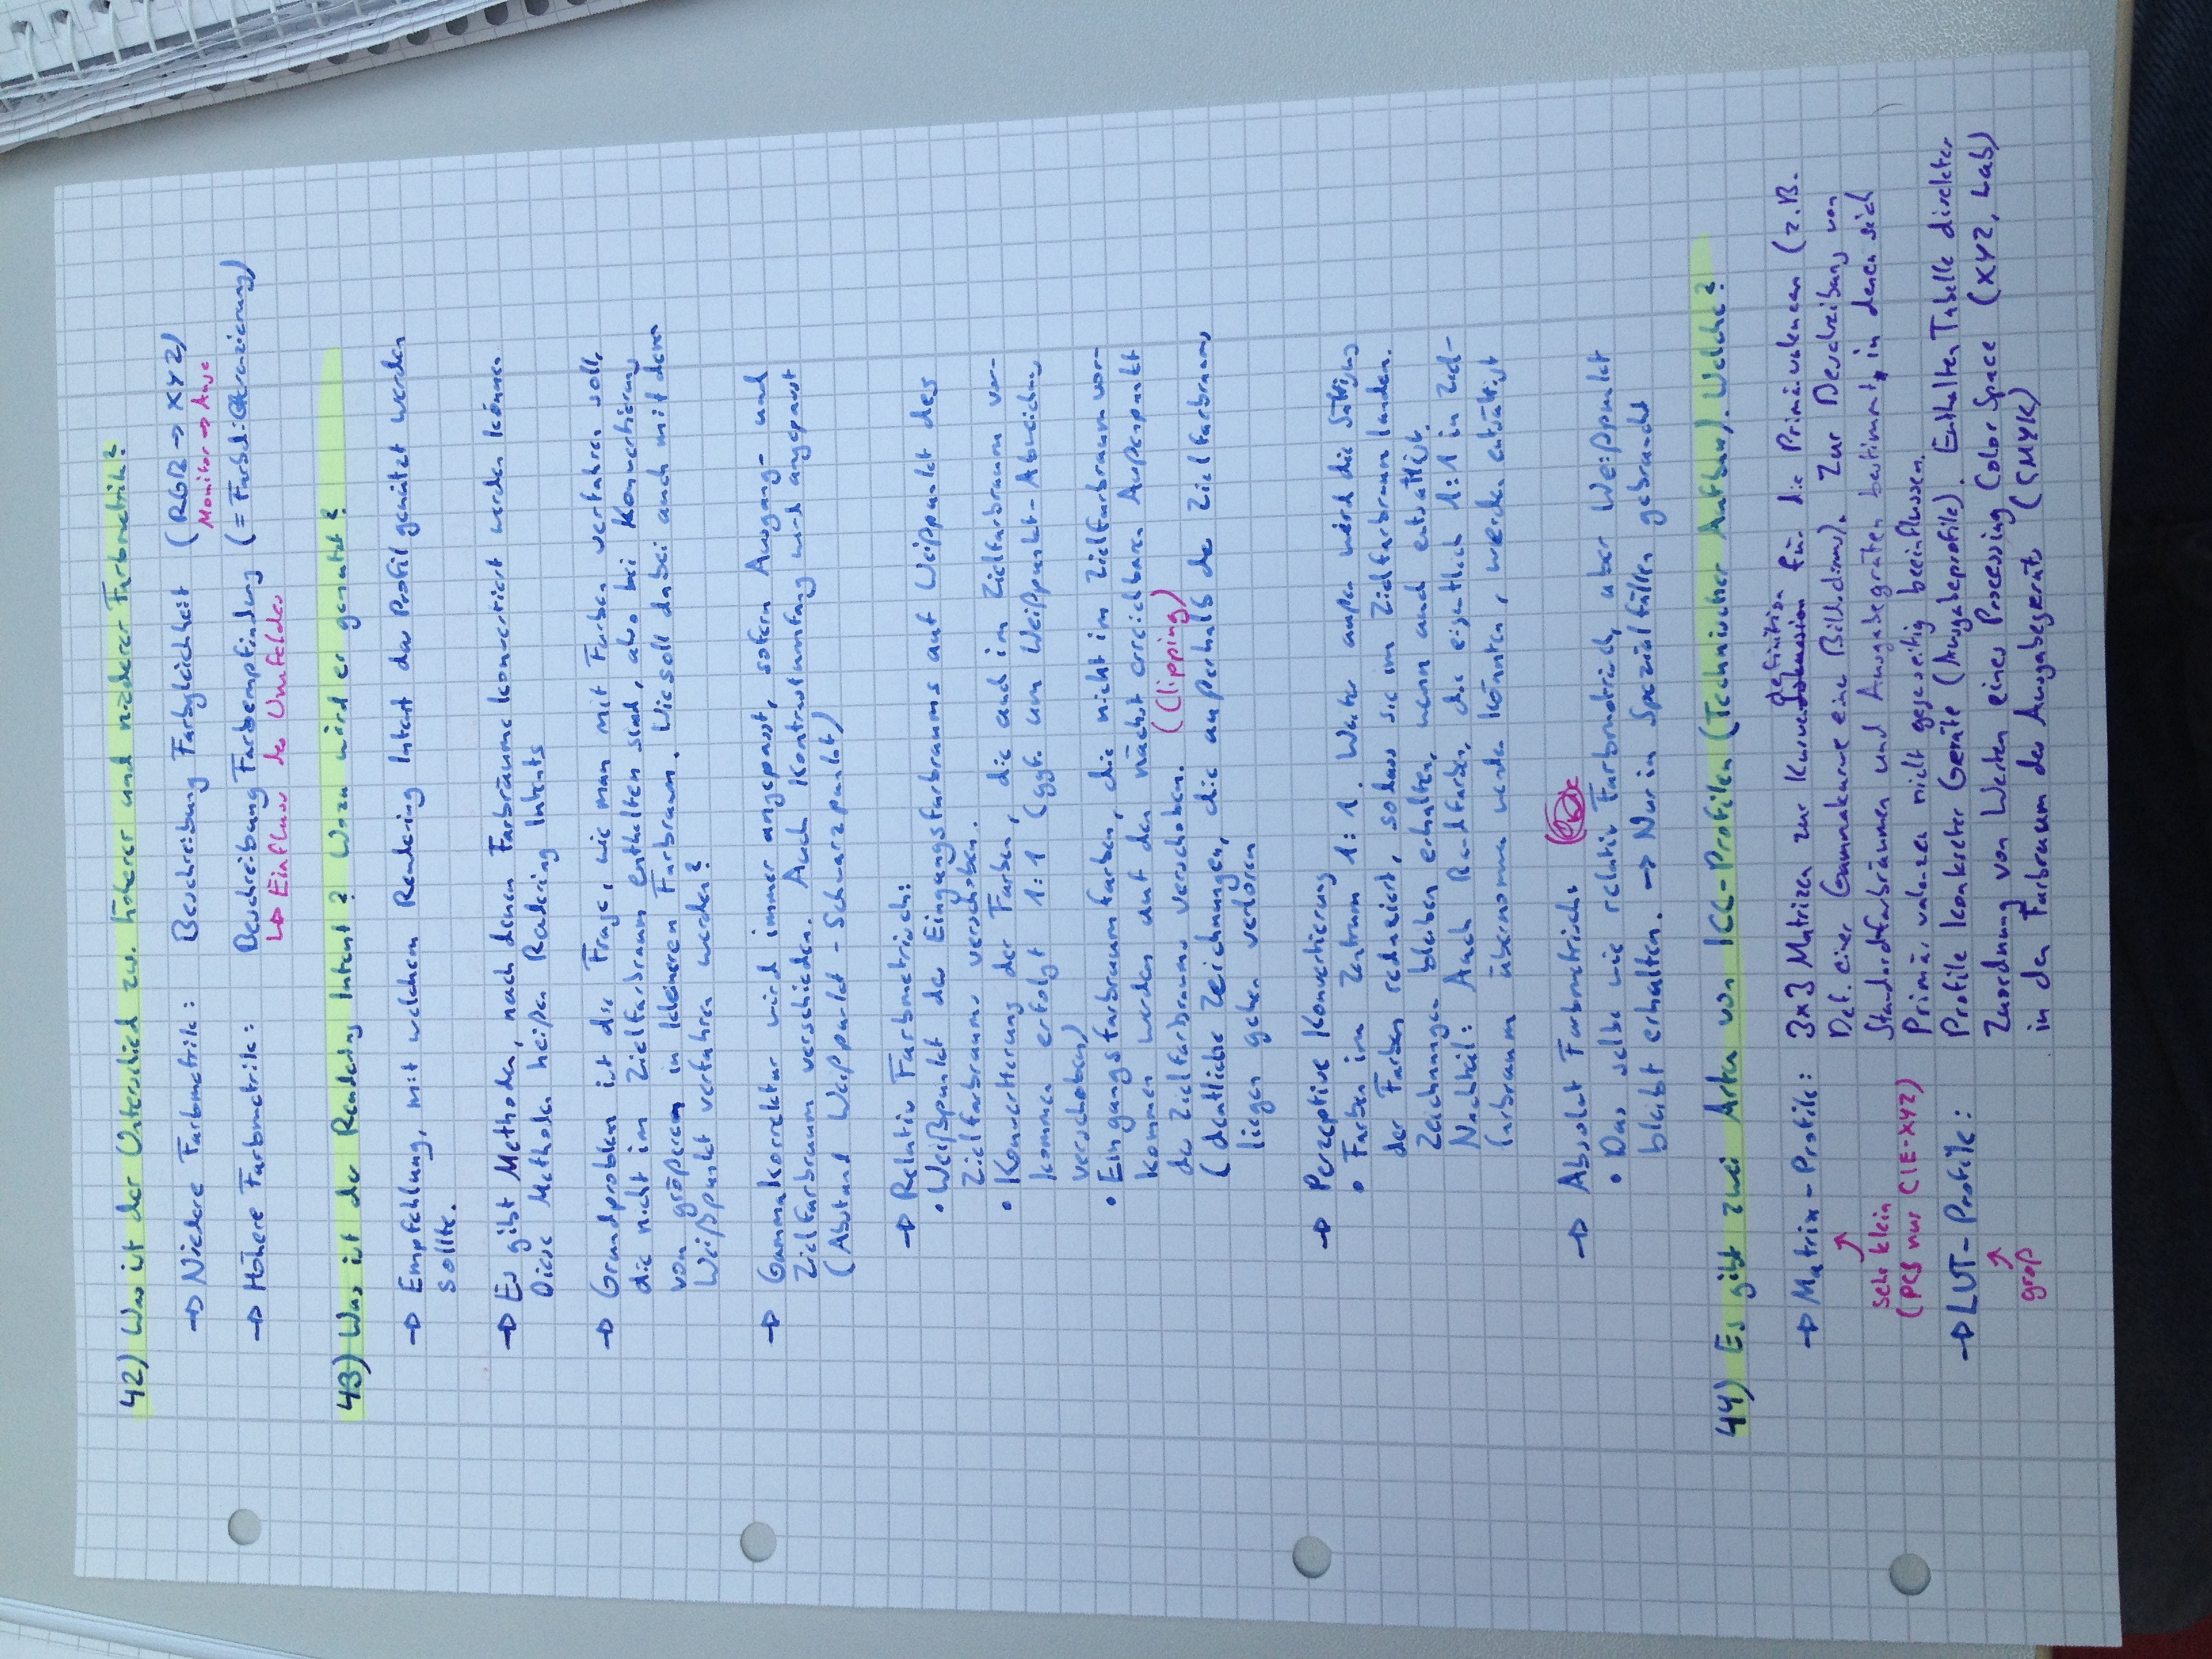 42) Was ist der Unterschied zw. höherer und niederer Farbmetrik?
→ Niedere Farbmetrik: Beschreibung Farbgleichheit (RGB → XYZ)
Monitor → Auge
→ Höhere Farbmetrik: Beschreibung Farbempfindung (= Farbdifferenzierung)
↳ Einfluss des Umfeldes
43) Was ist der Rendering Intent? Wozu wird er genutzt?
→ Empfehlung, mit welchen Rendering Intent das Profil genützt werden
sollte.
→ Es gibt Methoden, nach denen Farbräume konvertiert werden können
Diese Methoden heißen Rendering Intents
→ Grundproblem ist die Frage, wie man mit Farben verfahren soll,
die nicht im Zielfarbraum enthalten sind, also bei Konvertierung
von größerem in kleineren Farbraum. Wie soll dabei auch mit dem
Weißpunkt verfahren werden?
→ Gammakorrektur wird immer angepasst, sofern Ausgang- und
Zielfarbraum verschieden. Auch Kontrastumfang wird angepasst
(Abstand Weißpunkt - Schwarzpunkt)
→ Relativ Farbmetrisch:
• Weißpunkt des Eingangsfarbraums auf Weißpunkt des
Zielfarbraums verschoben.
• Konvertierung der Farben, die auch im Zielfarbraum vor-
kommen erfolgt 1:1 (ggf. um Weißpunkt-Abweichung
verschoben)
• Eingangsfarbraumfarben, die nicht im Zielfarbraum vor-
kommen werden auf den nächst erreichbaren Außenpunkt
des Zielfarbraums verschoben. (Clipping)
(deutliche Zeichnungen, die außerhalb des Zielfarbraums
liegen gehen verloren
→ Perzeptive Konvertierung
• Farben im Zentrum 1:1. Weiter außen wird die Sättigung
der Farben reduziert, sodass sie im Zielfarbraum landen.
Zeichnungen bleiben erhalten, wenn auch entsättigt.
Nachteil: Auch Randfarben, die eigentlich 1:1 in Ziel-
farbraum übernomme werden könnten, werden entsättigt
→ Absolut Farbmetrisch:
• Das selbe wie relativ Farbmetrisch, aber Weißpunkt
bleibt erhalten. → Nur in Spezialfällen gebraucht
44) Es gibt zwei Arten von ICC-Profilen (Technischer Aufbau). Welche?
→ Matrix-Profile: 3x3 Matrizen zur Kurvendefinition für die Primärvalenzen (z.B.
Def. einer Gammakurve eine Bildschirms). Zur Beschreibung von
Standardfarbräumen und Ausgabegräten bestimmt, in denen sich
Primärvalenzen nicht gegeseitig beeinflussen.
↑
sehr klein
(PCS nur CIE-XYZ)
→ LUT-Profile: Profile konkreter Geräte (Ausgabeprofile). Enthalten Tabelle direkter
Zuordnung von Werten eines Processing Color Space (XYZ, Lab)
in den Farbraum des Ausgabegeräts (CMYK)
↑
groß